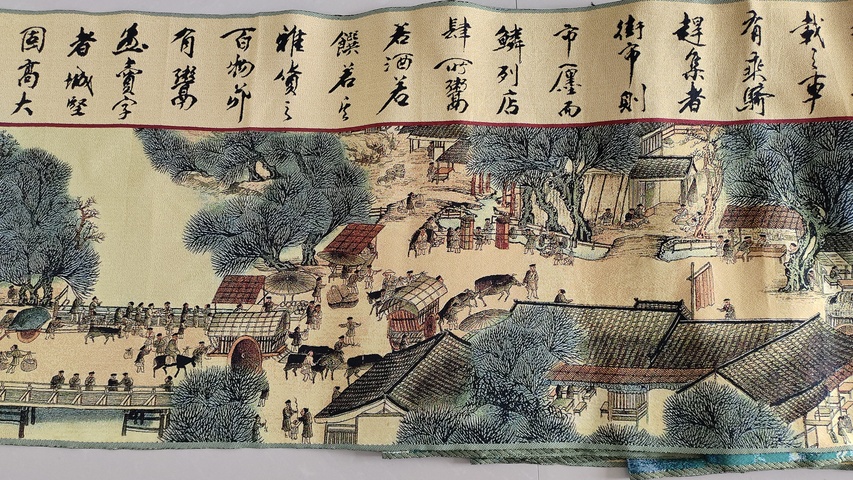 載之車
有乘騎
趕集者
街市則
市廛而
鱗列店
肆所鬻
若酒若
饌若
雜貨之
百物
有鬻
畫賣字
者城堅
固高大